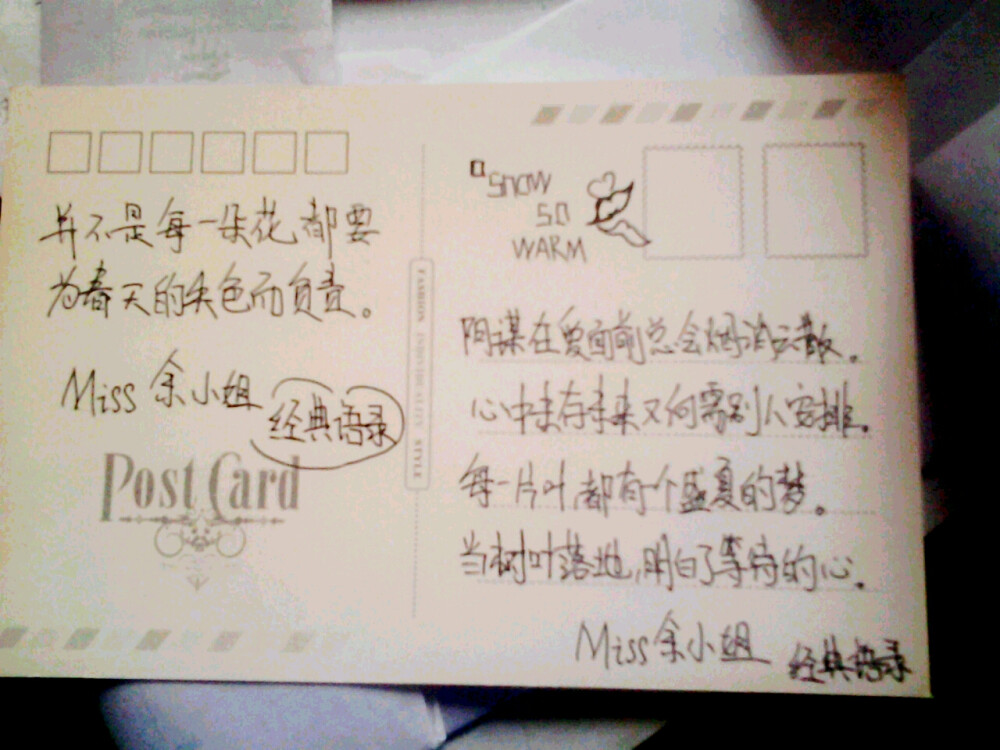 并不是每一朵花都要
为春天的失色而负责。
Miss 余小姐
经典语录
Post Card
FASHION INDIVIDUALITY STYLE
SNOW
SO
WARM
阴谋在爱面前总会烟消云散。
心中未存未来又何需别人安排。
每一片叶,都有一个盛夏的梦。
当树叶落地,明白了等待的心。
Miss 余小姐
经典语录